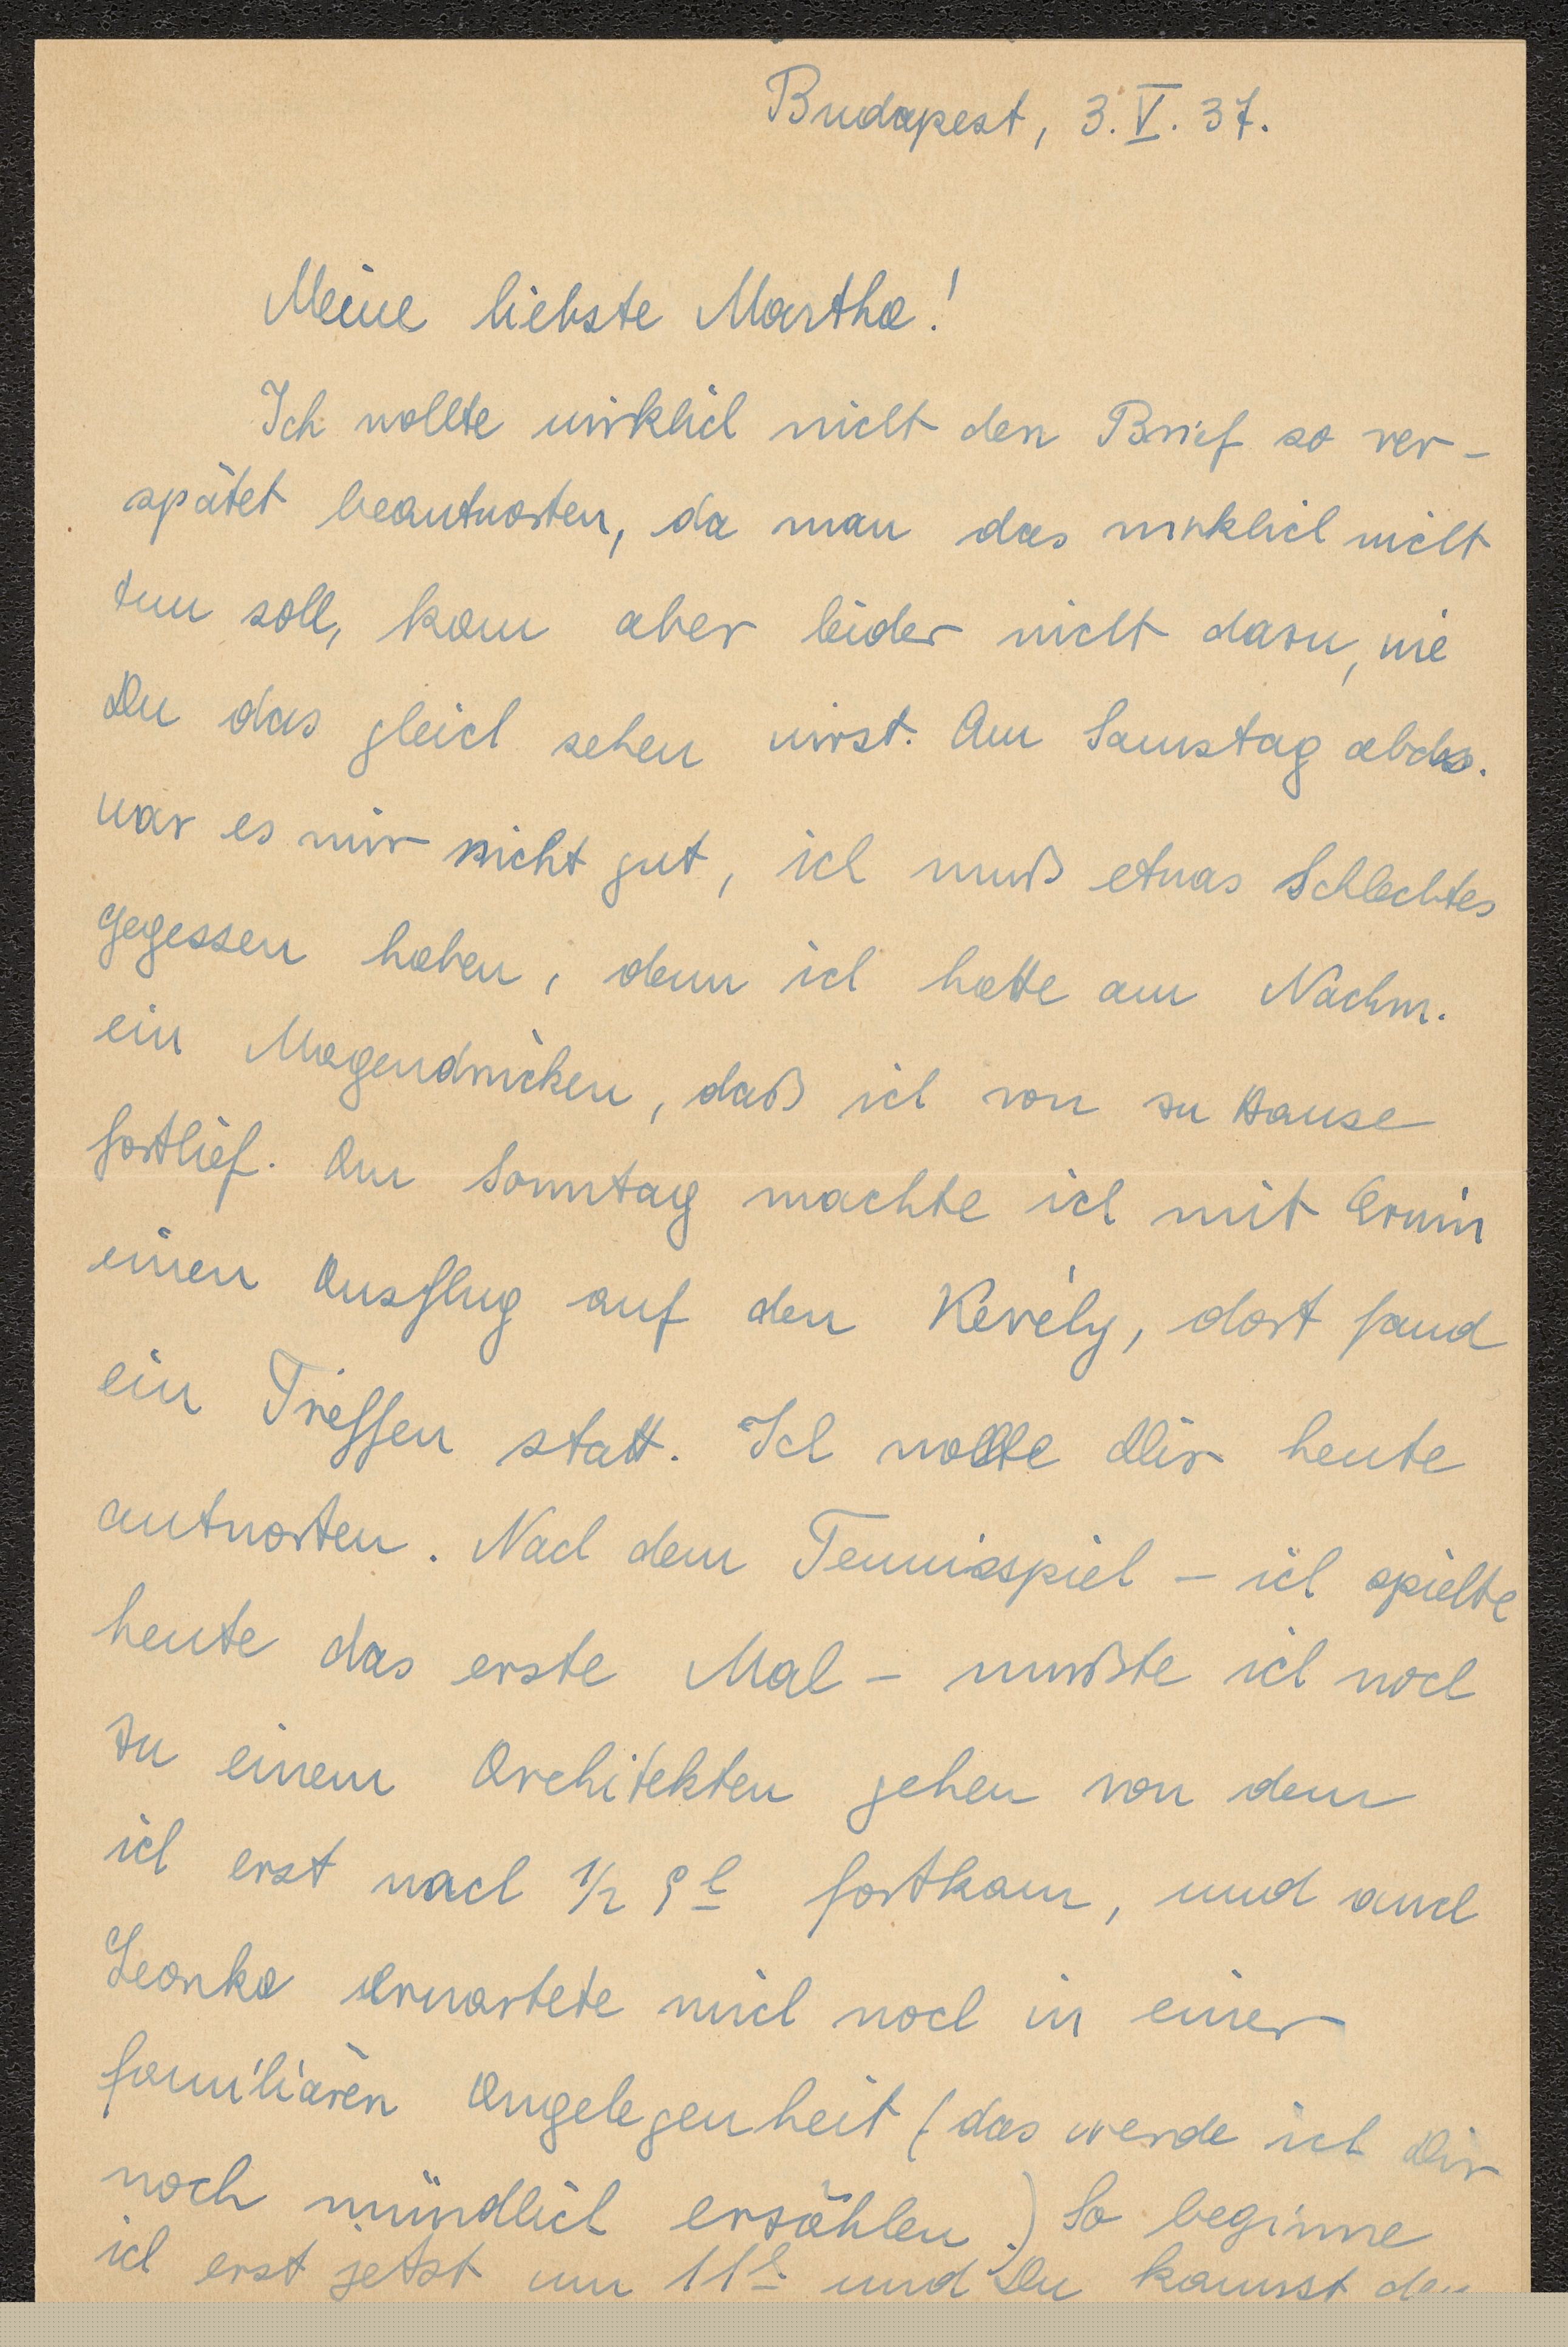 Budapest, 3. V. 37.
Meine liebste Martha!
Ich wollte wirklich nicht den Brief so ver-
spätet beantworten, da man das wirklich nicht
tun soll, kam aber leider nicht dazu, wie
Du das gleich sehen wirst. Am Samstag abds.
war es mir nicht gut, ich muß etwas Schlechtes
gegessen haben, denn ich hatte am Nachm.
ein Magendrücken, daß ich von zu Hause
fortlief. Am Sonntag machte ich mit Erwin
einen Ausflug auf den Kevély, dort fand
ein Treffen statt. Ich wollte Dir heute
antworten. Nach dem Tennisspiel – ich spielte
heute das erste Mal – mußte ich noch
zu einem Architekten gehen von dem
ich erst nach 1/2 9h fortkam, und auch
Leonka erwartete mich noch in einer
familiären Angelegenheit (das werde ich Dir
noch mündlich erzählen.) So beginne
ich erst jetzt um 11h und Du kannst